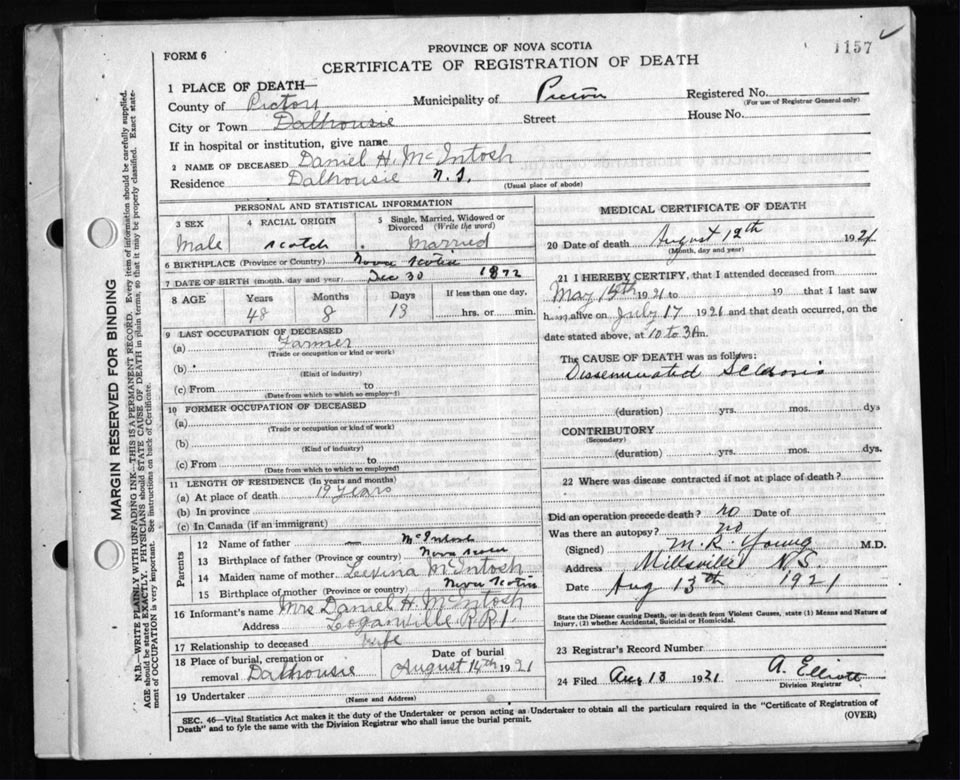 1157
FORM 6
PROVINCE OF NOVA SCOTIA
CERTIFICATE OF REGISTRATION OF DEATH
1 PLACE OF DEATH—
County of Pictou Municipality of Pictou Registered No.
(For use of Registrar General only)
City or Town Dalhousie Street House No.
If in hospital or institution, give name
2 NAME OF DECEASED Daniel H. McIntosh
Residence Dalhousie N.S.
(Usual place of abode)
PERSONAL AND STATISTICAL INFORMATION
3 SEX 4 RACIAL ORIGIN 5 Single, Married, Widowed or Divorced (Write the word)
Male Scotch . Married
6 BIRTHPLACE (Province or Country) Nova Scotia
7 DATE OF BIRTH (month, day and year) Dec 30 1872
8 AGE Years Months Days If less than one day,
48 8 13 hrs. or min.
9 LAST OCCUPATION OF DECEASED
(a) Farmer
(Trade or occupation or kind of work)
(b)
(Kind of industry)
(c) From to
(Date from which to which so employed)
10 FORMER OCCUPATION OF DECEASED
(a)
(Trade or occupation or kind of work)
(b)
(Kind of industry)
(c) From to
(Date from which to which so employed)
11 LENGTH OF RESIDENCE (In years and months)
(a) At place of death 19 years
(b) In province
(c) In Canada (if an immigrant)
Parents
12 Name of father — McIntosh
13 Birthplace of father (Province or country) Nova Scotia
14 Maiden name of mother Levina McIntosh
15 Birthplace of mother (Province or country) Nova Scotia
16 Informant's name Mrs Daniel H. McIntosh
Address Loganville R.R.1.
17 Relationship to deceased wife
18 Place of burial, cremation or removal Dalhousie Date of burial August 14th 1921
19 Undertaker
(Name and Address)
MEDICAL CERTIFICATE OF DEATH
20 Date of death August 12th 1921
(Month, day and year)
21 I HEREBY CERTIFY, that I attended deceased from
May 15th 1921 to 19 that I last saw
h alive on July 17 1921 and that death occurred, on the
date stated above, at 10 to 3 Am.
The CAUSE OF DEATH was as follows:
Disseminated Sclerosis
(duration) yrs. mos. dys
CONTRIBUTORY
(Secondary)
(duration) yrs. mos. dys.
22 Where was disease contracted if not at place of death?
Did an operation precede death? No Date of
Was there an autopsy? no
(Signed) M. R. Young M.D.
Address Millsville N.S.
Date Aug 13th 1921
State the Disease causing Death, or in death from Violent Causes, state (1) Means and Nature of
Injury, (2) whether Accidental, Suicidal or Homicidal.
23 Registrar's Record Number
24 Filed Aug 13 1921 A. Elliott
Division Registrar
SEC. 46—Vital Statistics Act makes it the duty of the Undertaker or person acting as Undertaker to obtain all the particulars required in the "Certificate of Registration of
Death" and to fyle the same with the Division Registrar who shall issue the burial permit. (OVER)
MARGIN RESERVED FOR BINDING
N.B.—WRITE PLAINLY WITH UNFADING INK—THIS IS A PERMANENT RECORD. Every item of information should be carefully supplied.
AGE should be stated EXACTLY. PHYSICIANS should STATE CAUSE OF DEATH in plain terms, so that it may be properly classified. Exact state-
ment of OCCUPATION is very important. See instructions on back of Certificate.